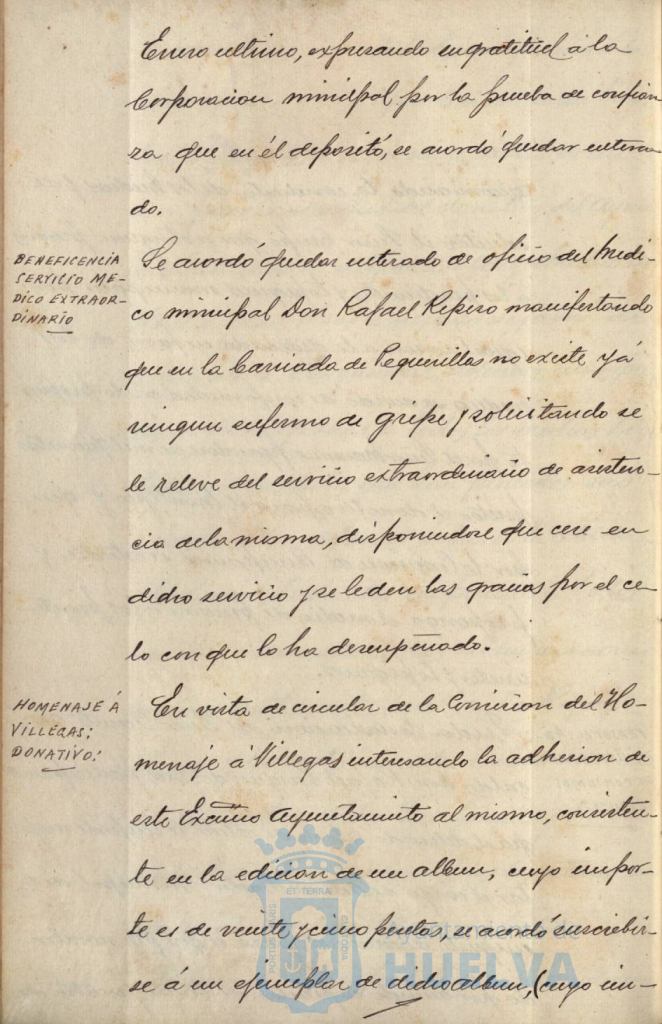 Enero ultimo, expresando su gratitud á la
Corporacion municipal por la prueba de confian
za que en él depositó, se acordó quedar entera
do.
BENEFICENCIA
SERVICIO ME-
DICO EXTRAOR-
DINARIO
Se acordó quedar enterado de oficio del Medi-
co municipal Don Rafael Repiso manifestando
que en la barriada de Peguerillas no existe yá
ningun enfermo de gripe y solicitando se
le releve del servicio extraordinario de asisten-
cia de la misma, disponiendose que cese en
dicho servicio y se le den las gracias por el ce-
lo con que lo ha desempeñado.
HOMENAJE Á
VILLEGAS:
DONATIVO:
En vista de circular de la Comision del Ho-
menaje á Villegas interesando la adhesion de
este Excmo Ayuntamiento al mismo, consisten-
te en la edicion de un album, cuyo impor-
te es de veinte y cinco pesetas, se acordó suscribir-
se á un ejemplar de dicho album, (cuyo im-
ET TERRÆ
PORTUS MARIS
CUSTODIA
Ayuntamiento de
HUELVA